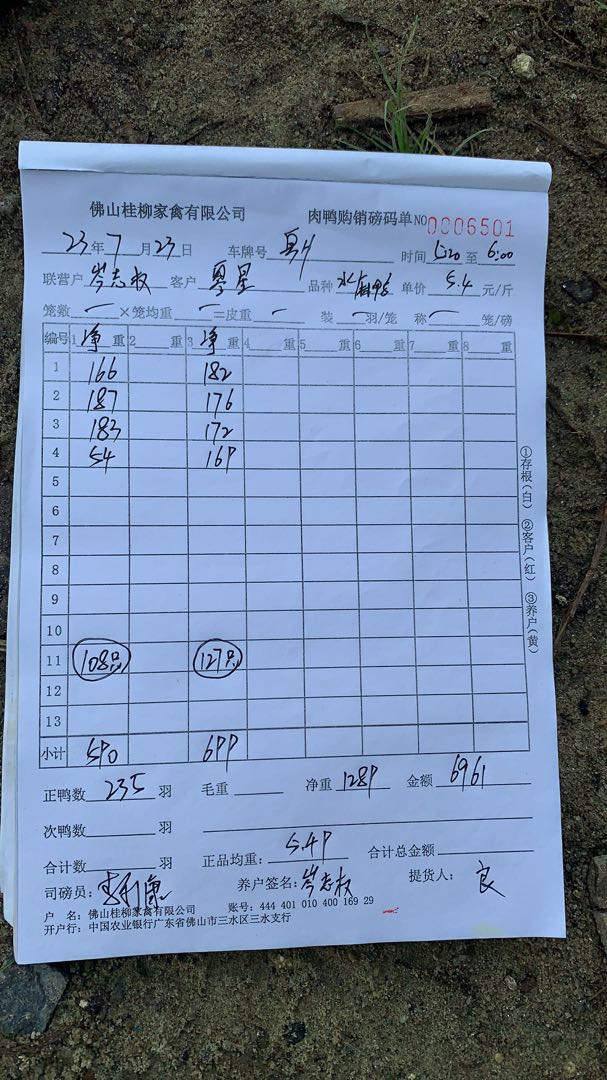 佛山桂柳家禽有限公司 肉鸭购销磅码单 NO 0006501
23年7月23日 车牌号 粤A 时间 5:20 至 6:00
联营户 岑志权 客户 粤星 品种 水麻鸭 单价 5.4 元/斤
笼数 一 ×笼均重 一 =皮重 一 装 一 羽/笼 称 一 笼/磅
编号 1 净 重 2 重 3 净 重 4 重 5 重 6 重 7 重 8 重
1 166 182
2 187 176
3 183 172
4 54 169
5
6
7
8
9
10
11 108只 127只
12
13
小计 590 699
①存根(白) ②客户(红) ③养户(黄)
正鸭数 235 羽 毛重 净重 1289 金额 6961
次鸭数 羽
合计数 羽 正品均重: 5.49 合计总金额
司磅员: 养户签名: 岑志权 提货人: 良
户 名: 佛山桂柳家禽有限公司 账号: 444 401 010 400 169 29
开户行: 中国农业银行广东省佛山市三水区三水支行